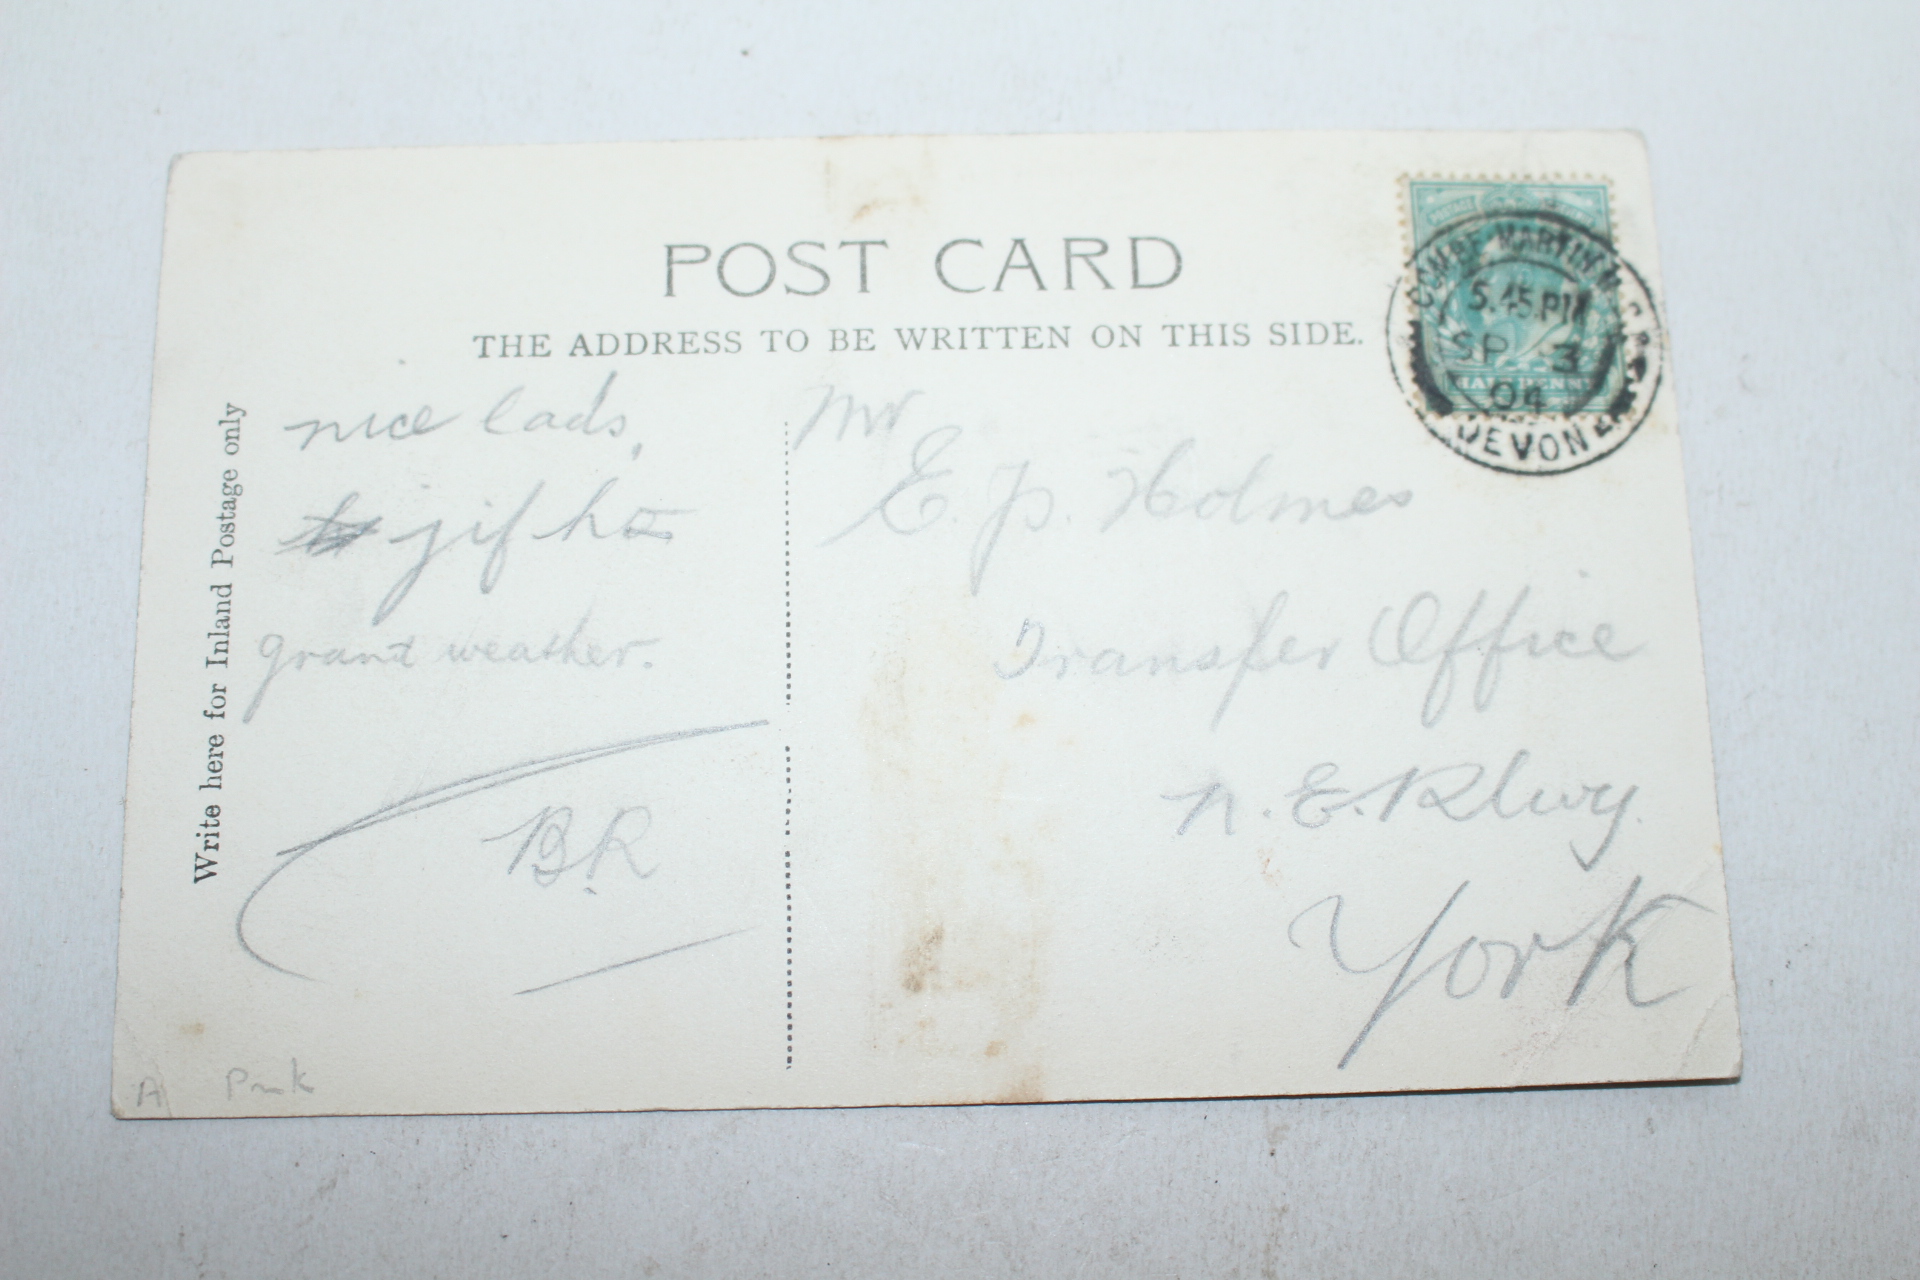 POST CARD
THE ADDRESS TO BE WRITTEN ON THIS SIDE.
Write here for Inland Postage only
nice lads,
grand weather.
B.R
Mr
E. P. Holmes
Transfer Office
N. E. Rlwy.
York
COMBE MARTIN
5.45 PM
SP 3
04
DEVON
HALFPENNY
A